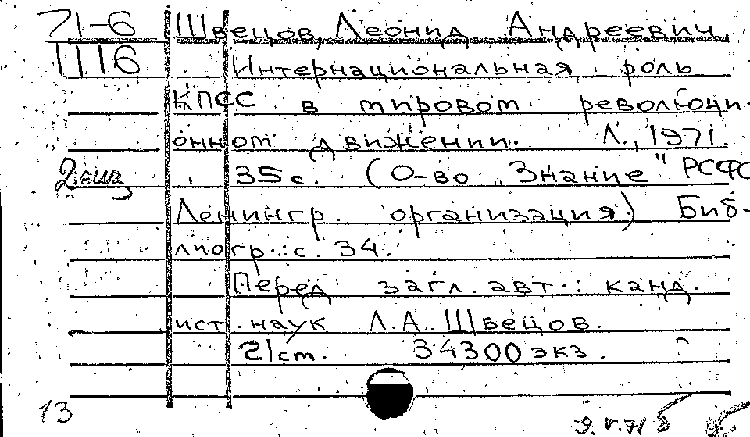 71-6 Швецов, Леонид Андреевич
Ш16 Интернациональная роль
КПСС в мировом революци
онном движении. Л., 1971
2 экз 35 с. (О-во "Знание" РСФС
Ленингр. организация) Биб-
лиогр.: с. 34.
Перед загл. авт.: канд.
ист. наук Л.А. Швецов.
21 ст. 34300 экз.
13